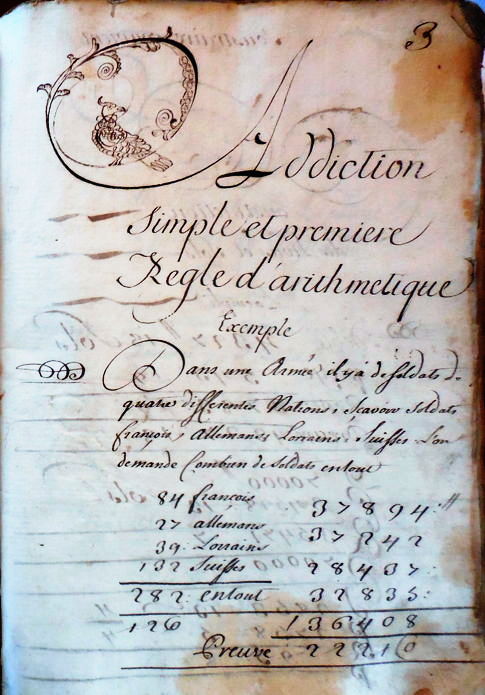 3
Addiction
Simple et premiere
Regle d'arithmetique
Exemple
Dans une Armée il y à de soldats de
quatre differentes Nations, Scavoir Soldats
françois, Allemans, Lorrains, Suisses Lon
demande Combien de Soldats entout
84 françois 37894
27 allemans 37242
39 Lorrains 28437
132 Suisses 32835
282 entout 136408
126
Preuve 22210